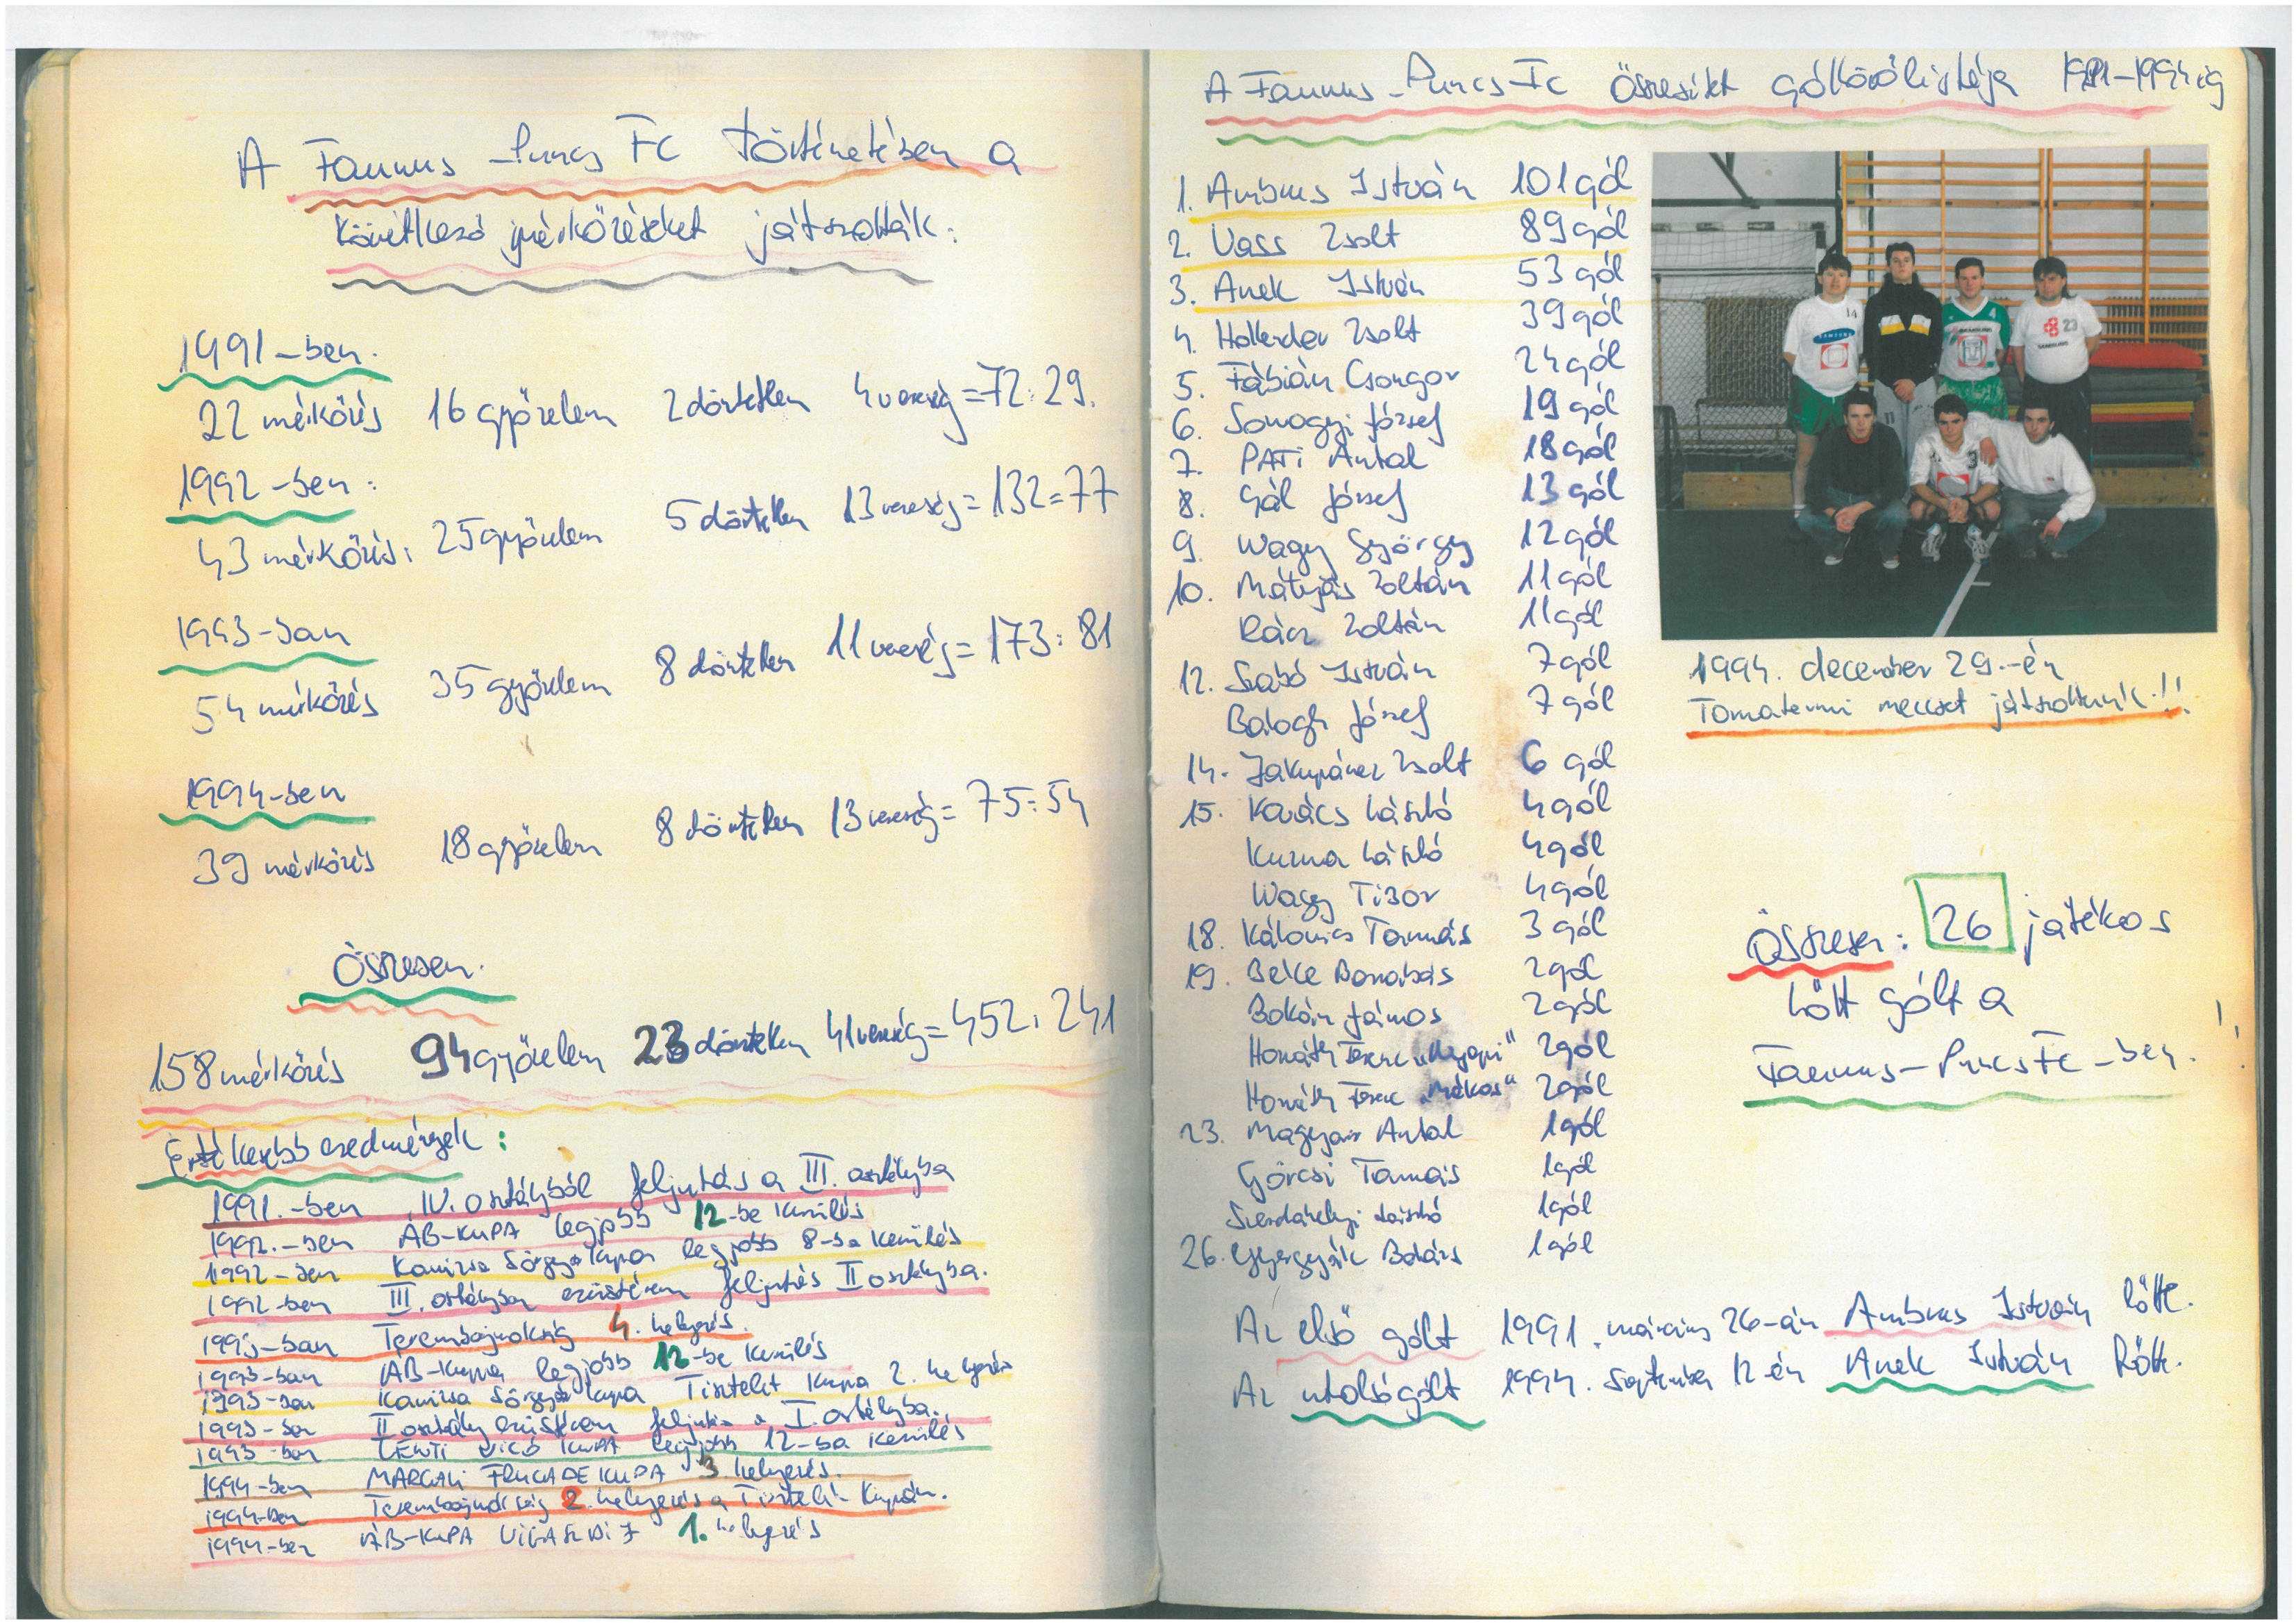 A Faunus-Puncs FC történetében a
következő mérkőzéseket játszották:
1991-ben.
22 mérkőzés 16 győzelem 2 döntetlen 4 vereség = 72:29.
1992-ben:
43 mérkőzés: 25 győzelem 5 döntetlen 13 vereség = 132=77
1993-ban
54 mérkőzés 35 győzelem 8 döntetlen 11 vereség = 173:81
1994-ben
39 mérkőzés 18 győzelem 8 döntetlen 13 vereség = 75:54
Összesen.
158 mérkőzés 94 győzelem 23 döntetlen 41 vereség = 452:241
Értékesebb eredmények:
1991.-ben IV. osztályból feljutás a III. osztályba
1992.-ben ÁB-KUPA legjobb 12-be kerülés
1992-ben Kanizsa Sörgyár kupa legjobb 8-ba kerülés
1992-ben III. osztályban ezüstérem feljutás II osztályba.
1993-ban Terembajnokság 4. helyezés.
1993-ban ÁB-Kupa legjobb 12-be kerülés
1993-ban Kanizsa Sörgyár kupa Tisztelet Kupa 2. helyezés
1993-ban II osztály ezüstérem feljutás a I. osztályba.
1993-ban LENTI KUPA legjobb 12-ba kerülés
1994-ben MARCALI FRUCADE KUPA 3. helyezés.
1994-ben Terembajnokság 2. helyezés a Tisztelet Kupán.
1994-ben ÁB-KUPA VIGASZDÍJ 1. helyezés
A Faunus-Puncs-Fc Összesített góllövőlistája 1991-1994ig
1. Ambrus István 101 gól
2. Vass Zsolt 89 gól
3. Anek István 53 gól
4. Hollender Zsolt 39 gól
5. Fábián Csongor 24 gól
6. Somogyi József 19 gól
7. PATI Antal 18 gól
8. Gál József 13 gól
9. Wagy György 12 gól
10. Mátyás Zoltán 11 gól
Rácz Zoltán 11 gól
12. Szabó István 7 gól
Balogh József 7 gól
14. Zsolt 6 gól
15. Kovács László 4 gól
Kuzma László 4 gól
Wagy Tibor 4 gól
18. Kálovics Tamás 3 gól
19. Beke Barnabás 2 gól
Bokán János 2 gól
Horváth Ferenc 2 gól
Horváth Ferenc „Mákos" 2 gól
23. Magyar Antal 1 gól
Görcsi Tamás 1 gól
Szerdahelyi László 1 gól
26. Gyergyák Balázs 1 gól
14
4
23
SAMSUNG
3
1994. december 29.-én
Tornatermi meccset játszottunk!!
Összesen: 26 játékos
lőtt gólt a
Faunus-Puncs Fc-ben. !!
Az első gólt 1991. március 26-án Ambrus István lőtte.
Az utolsó gólt 1994. Szeptember 12-én Anek István lőtte.